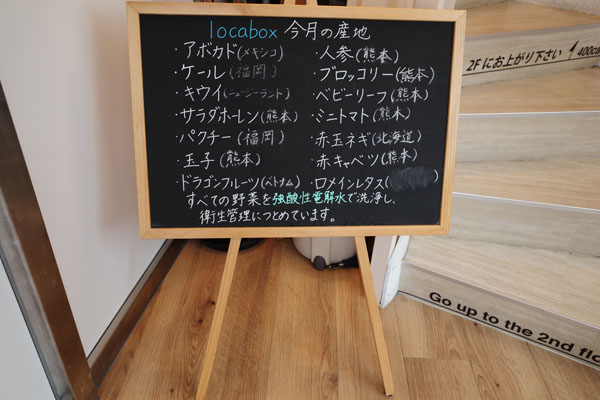 locabox 今月の産地
・アボカド(メキシコ)
・ケール(福岡)
・キウイ(ニュージーランド)
・サラダホーレン(熊本)
・パクチー(福岡)
・玉子(熊本)
・ドラゴンフルーツ(ベトナム)
・人参(熊本)
・ブロッコリー(熊本)
・ベビーリーフ(熊本)
・ミニトマト(熊本)
・赤玉ネギ(北海道)
・赤キャベツ(熊本)
・ロメインレタス( )
すべての野菜を強酸性電解水で洗浄し、
衛生管理につとめています。
2Fにお上がり下さい
400ca
Go up to the 2nd flo